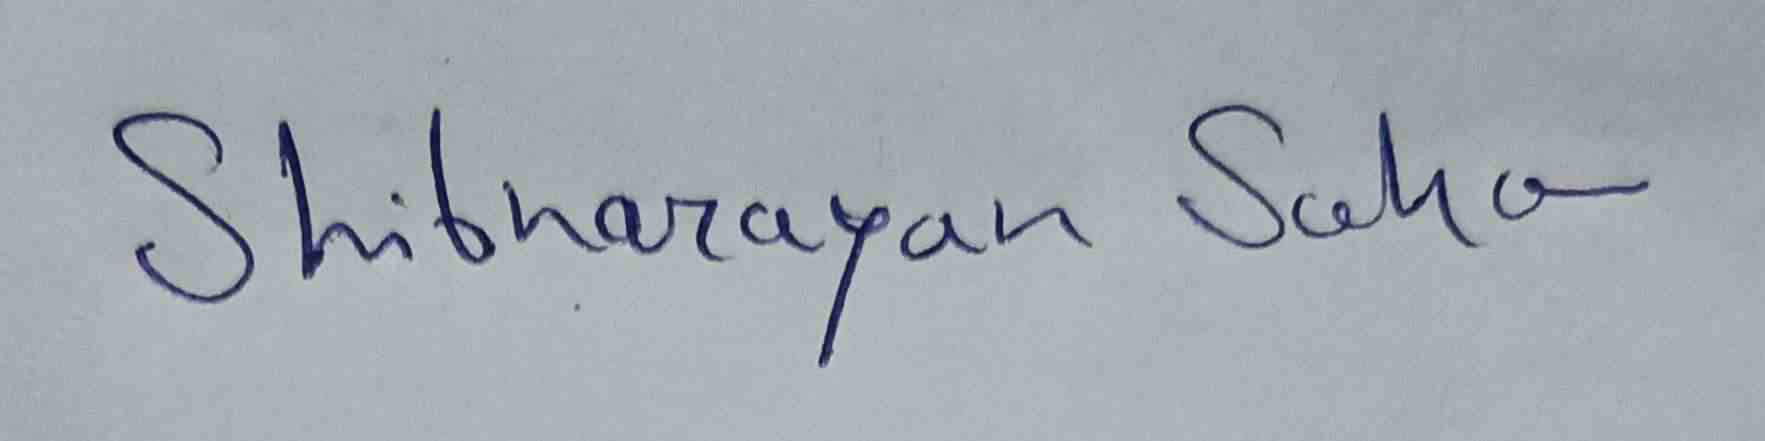 Shibnarayan Saha